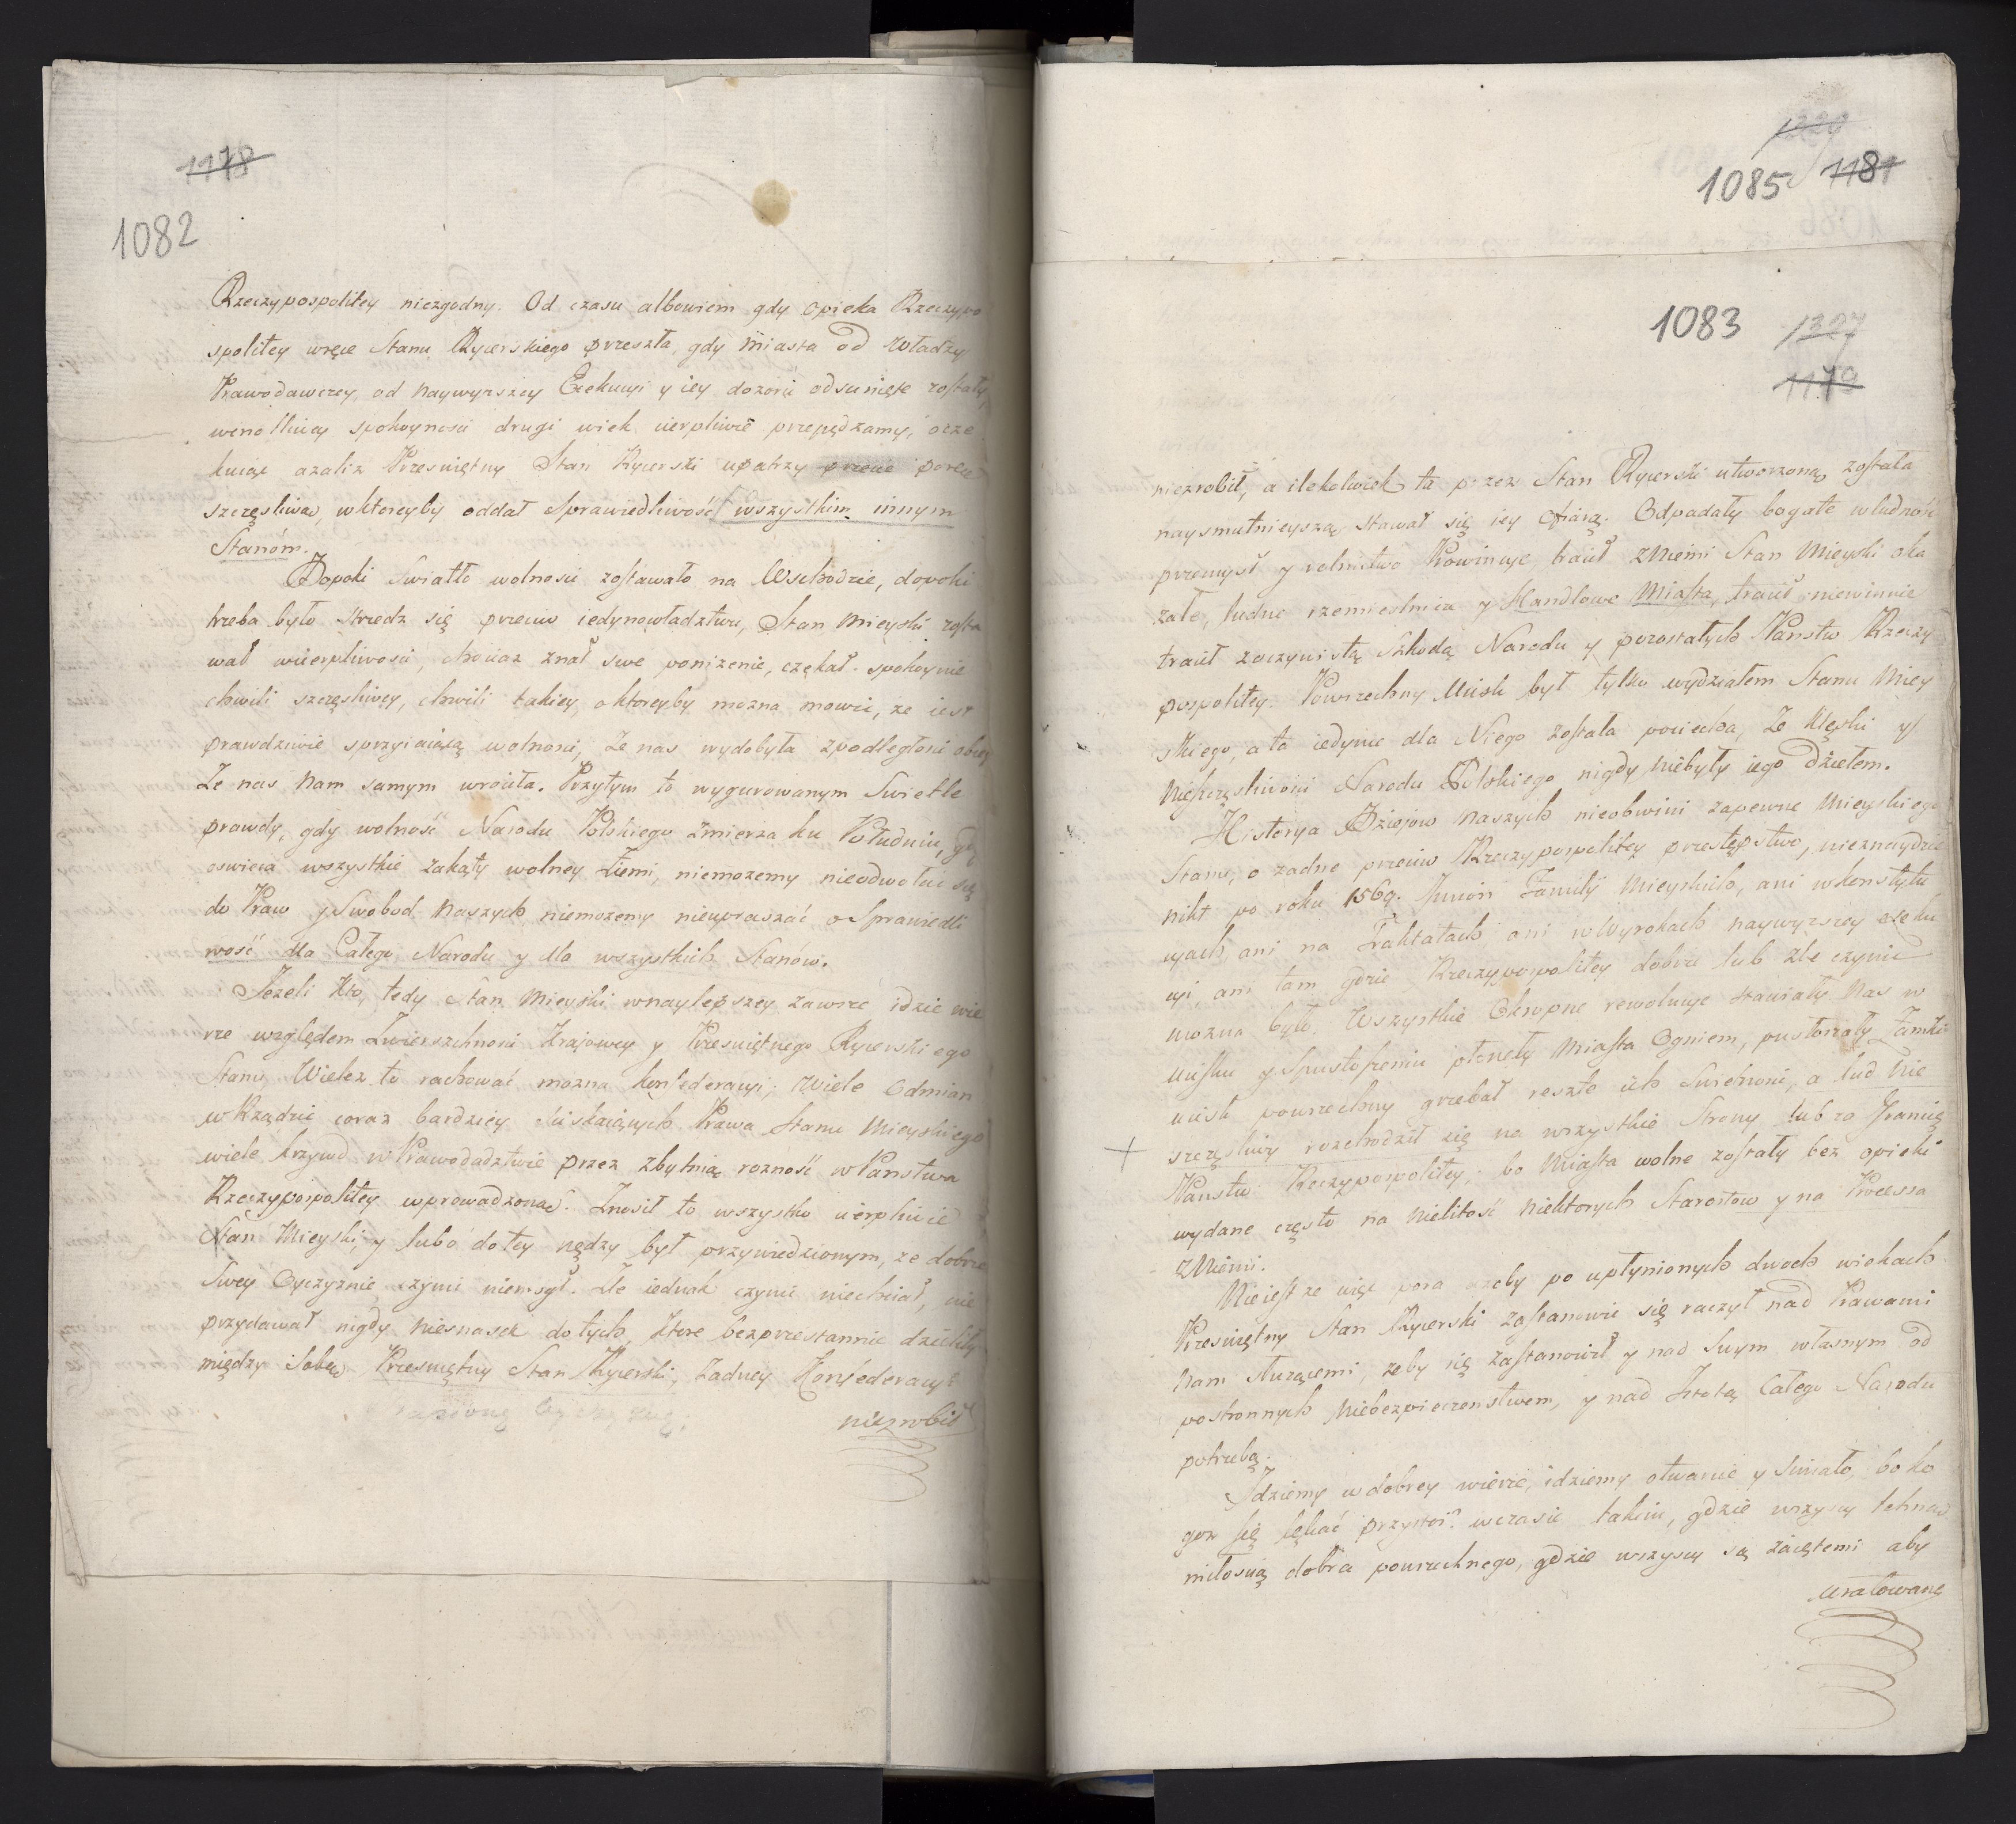 1178
1082
Rzeczypospolitey niezgodny. Od czasu albowiem gdy opieka Rzeczypo
spolitey wręce Stanu Rycerskiego przeszła, gdy miasta od Władzy
Prawodawczey, od naywyzszey Exekucyi y iey dozoru odsunięte zostały,
wcnotliwey spokoynosci drugi wiek cierpliwie przepędzamy, ocze
kuiąc azaliz Przeświętny Stan Rycerski upatrzy przecie porę
szczęsliwą, wktoreyby oddał Sprawiedliwość wszystkim innym
Stanóm.
Dopoki Swiatło wolnosci zostawało na Wschodzie, dopoki
trzeba było strzedz się przeciw iedynowładztwu, Stan Mieyski zosta
wał wcierpliwosci, chociaz znał swe ponizenie, czękał spokoynie
chwili szczęsliwey, chwili takiey o ktoreyby mozna mowic, ze iest
prawdziwie sprzyiaiącą wolnosci, Ze nas wydobyła zpodległosci obcey
Ze nas Nam samym wróciła. Przytym to wygurowanym Swietle
prawdy, gdy wolność Narodu Polskiego Zmierza ku Południu, gdy
oswieca wszystkie zakąty wolney Ziemi, niemozemy nieodwołac się
do Praw y Swobod Naszych niemozemy nieupraszać o Sprawiedli
wość dla Całego Narodu y dla wszystkich Stanow.
Jezeli Kto, tedy Stan Mieyski wnaylepszey Zawsze idzie wie
rze względem Zwierzchnosci Kraiowey y Przeświętnego Rycerskiego
Stanu. Wielez to rachować mozna konfederacyi; Wiele Odmian
w Rządzie coraz bardziey Niszczących Prawa Stanu Mieyskiego
wiele krzywd w Prawodadztwie przez zbytnią rozność w Państwa
Rzeczypospolitey wprowadzoną. Znosił to wszystko cierpliwie
Stan Mieyski, y lubo dotey nędzy był przywiedzionym, ze dobrze
Swey Oyczyznie czynić niemogł. Zle iednak czynić niechciał, nie
przydawał nigdy Niesnasek dotych, ktore bezprzestannie dzieliły
między Sobą Przeświętny Stan Rycerski, Zadney Konfederacyi
niezrobił
1329
1085 1181
1083 1327
1179
niezrobił, a ilekolwiek ta przez Stan Rycerski utworzoną została
naysmutnieyszą stawał się iey ofiarą. Odpadały bogate wludność
przemysł y rolnictwo Prowincye, tracił zNiemi Stan Mieyski oka
załe, ludne rzemieslnicze y Handlowe Miasta, tracił niewinnie
tracił zoczywistą Szkodą Narodu y pozostałych Państw Rzeczy
pospolitey. Powszechny Ucisk był tylko wydziałem Stanu Miey
skiego, a ta iedynie dla Niego została pociecha, Ze klęski y
Nieszczęsliwosci Narodu Polskiego nigdy niebyły iego dziełem.
Historya Dzieiow Naszych nieobwini zapewne Mieyskiego
Stanu, o zadne przeciw Rzeczypospolitey przestępstwo, nieznaydzie
nikt po roku 1569. Imion Familij Mieyskich, ani wkonstytu
cyach ani na Traktatach, ani w Wyrokach naywyzszey exeku
cyi, ani tam gdzie Rzeczypospolitey dobrze lub zle czynić
mozna było. Wszystkie Okropne rewolucye stawiały Nas w
ucisku y Spustoszeniu płonęły Miasta Ogniem, pustoszały Zamki
ucisk powszechny grzebał resztę ich Swietnosci, a lud Nie
+ szczęsliwy rozchodził się na wszystkie Strony lub za Granicę
Państw Rzeczypospolitey; bo Miasta wolne zostały bez opieki
wydane często na Nielitość Niektorych Starostow y na Processa
zNiemi.
Nie iest ze więc pora azeby po upłynionych dwoch wiekach
Przeświętny Stan Rycerski zastanowić się raczył nad Prawami
Nam słuzącemi, zeby się zastanowił y nad Swym własnym od
postronnych Niebezpieczenstwem, y nad Istotą Całego Narodu
potrzebą.
Idziemy w dobrey wierze, idziemy otwarcie y smiało, bo ko
goz się lękać przystoi wczasie takim, gdzie wszyscy tchną
miłoscią dobra powszechnego, gdzie wszyscy są zaiętemi aby
uratowane